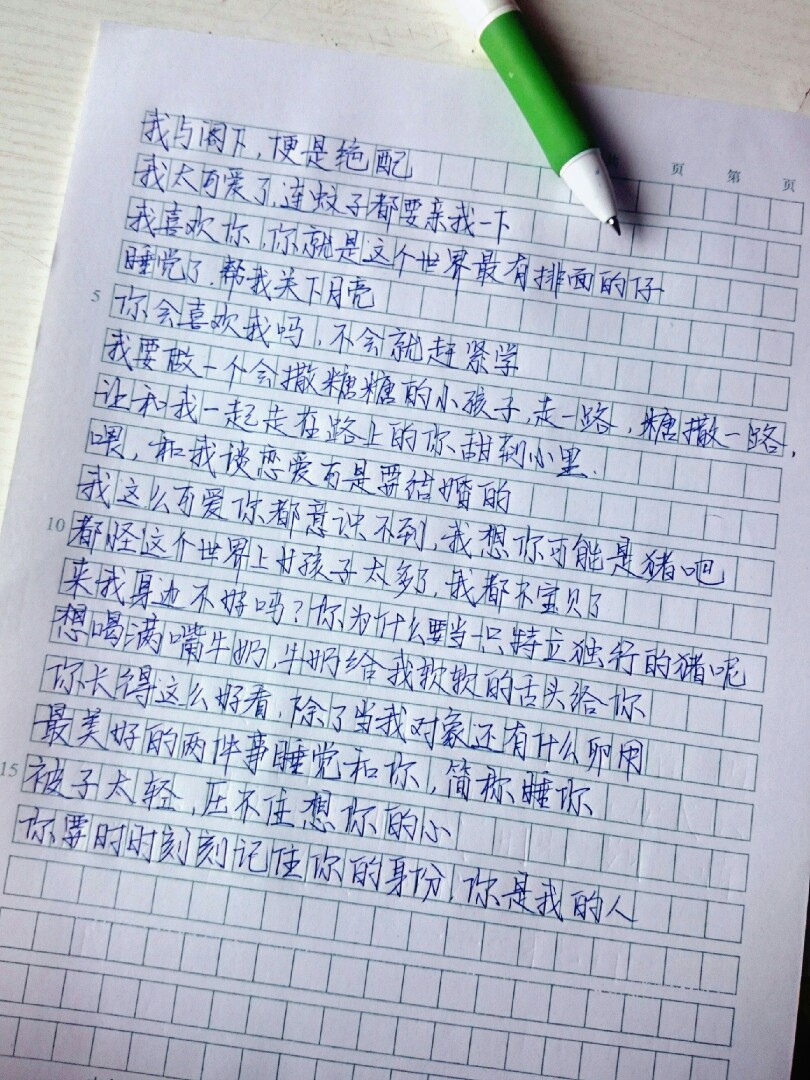 页 第 页
我与阁下，便是绝配
我太可爱了，连蚊子都要亲我一下
我喜欢你，你就是这个世界最有排面的仔
睡觉了，帮我关下月亮
5
你会喜欢我吗，不会就赶紧学
我要做一个会撒糖糖的小孩子，走一路，糖撒一路，
让和我一起走在路上的你甜到心里.
喂，和我谈恋爱可是要结婚的
我这么可爱你都意识不到，我想你可能是猪吧
10
都怪这个世界上女孩子太多了，我都不宝贝了
来我身边不好吗？你为什么要当一只特立独行的猪呢
想喝满嘴牛奶，牛奶给我软软的舌头给你
你长得这么好看，除了当我对象还有什么卵用
最美好的两件事睡觉和你，简称睡你
15
被子太轻，压不住想你的心
你要时时刻刻记住你的身份，你是我的人